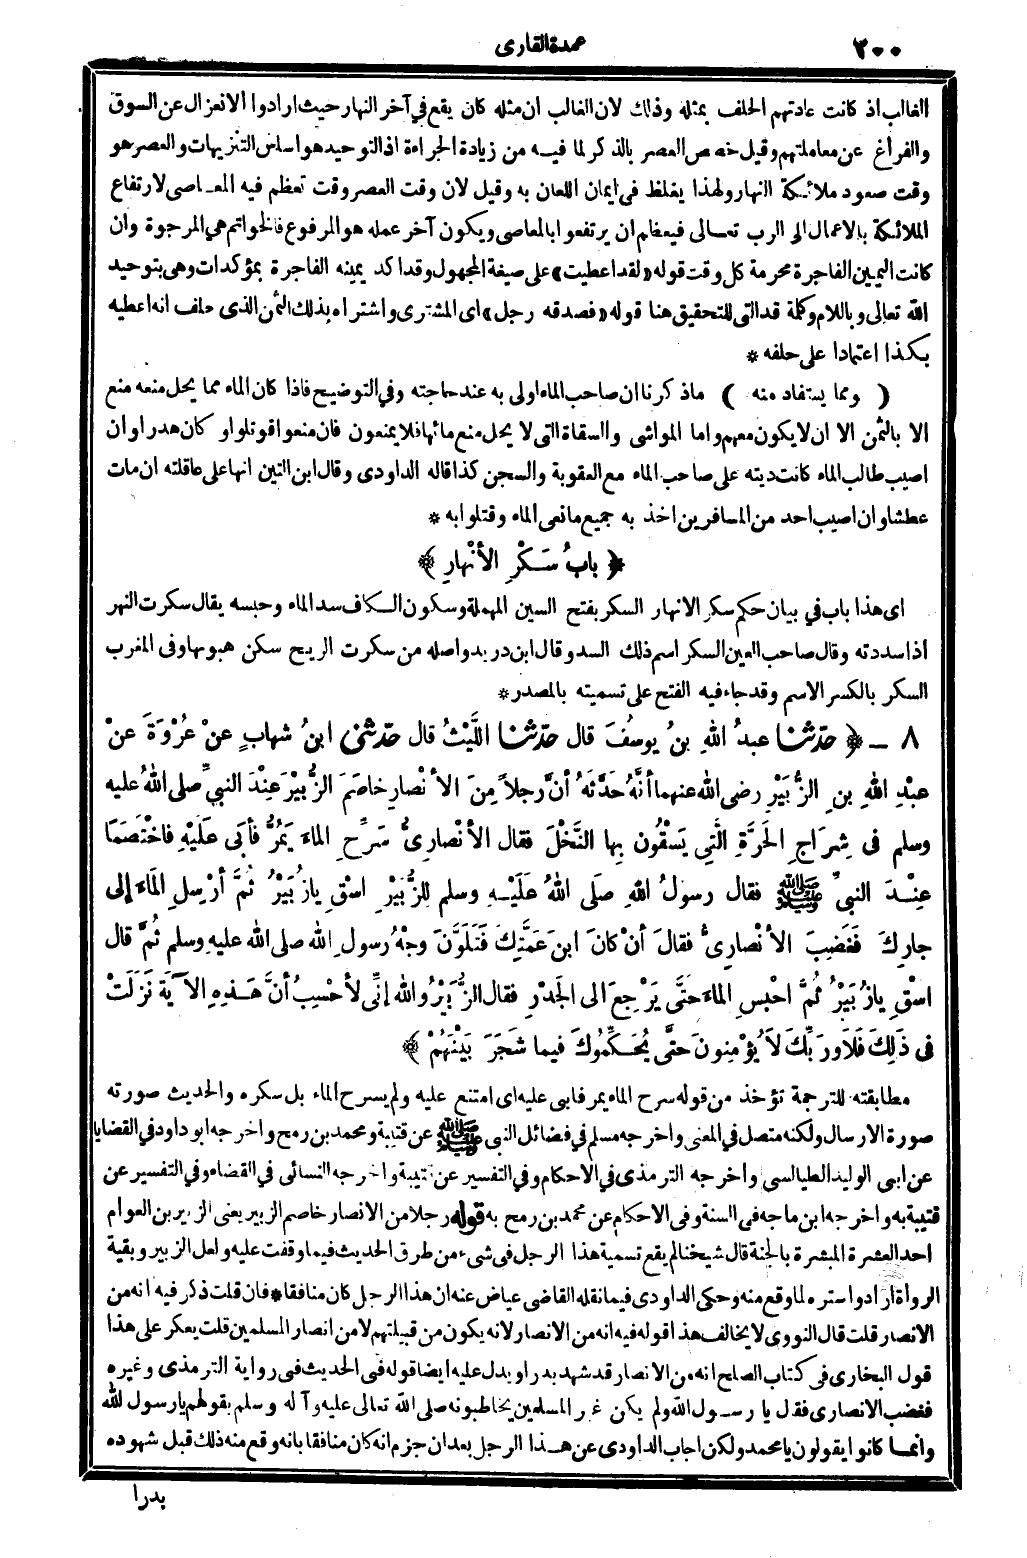 ٢٠٠
عمدة القارى
الغالب اذ كانت عادتهم الحلف بمثله وذلك لان الغالب ان مثله كان يقع في آخر النهار حيث ارادوا الانعزال عن السوق
والفراغ عن معاملتهم وقيل خصص العصر بالذكر لما فيه من زيادة الجراءة اذ التوحيد هو اساس التنزيهات والعصر هو
وقت صعود ملائكة النهار ولهذا يغلظ في ايمان اللعان به وقيل لان وقت العصر وقت تعظم فيه المعاصى لارتفاع
الملائكة بالاعمال الى الرب تعالى فيعظم ان يرتفعوا بالمعاصى ويكون آخر عمله هو المرفوع فالخواتم هي المرجوة وان
كانت اليمين الفاجرة محرمة كل وقت قوله «لقد اعطيت» على صيغة المجهول وقد اكد يمينه الفاجرة بمؤكدات وهى بتوحيد
الله تعالى وباللام وكلمة قد التى للتحقيق هنا قوله «فصدقه رجل» اى المشترى واشتراه بذلك الثمن الذى حلف انه اعطيه
بكذا اعتمادا على حلفه *
( ومما يستفاد منه ) ماذكرنا ان صاحب الماء اولى به عند حاجته وفي التوضيح فاذا كان الماء مما يحل منعه منع
الا بالثمن الا ان لا يكون معهم واما المواشى والسقاة التى لا يحل منع مائها فلا يمنعون فان منعوا قوتلوا وكان هدرا وان
اصيب طالب الماء كانت ديته على صاحب الماء مع العقوبة والسجن كذا قاله الداودى وقال ابن التين انها على عاقلته ان مات
عطشا وان اصيب احد من المسافرين اخذ به جميع مانعى الماء وقتلوا به *
﴿ بابُ سَكْرِ الأنْهارِ ﴾
اى هذا باب في بيان حكم سكر الانهار السكر بفتح السين المهملة وسكون الكاف سد الماء وحبسه يقال سكرت النهر
اذا سددته وقال صاحب العين السكر اسم ذلك السد وقال ابن دريد واصله من سكرت الريح سكن هبوبها وفى المغرب
السكر بالكسر الاسم وقد جاء فيه الفتح على تسميته بالمصدر *
٨ ـ ﴿ حدّثنا عبدُ اللهِ بنُ يوسُفَ قال حدّثنا اللَّيْثُ قال حدّثنى ابنُ شهابٍ عنْ عُرْوَةَ عنْ
عبْدِ اللهِ بنِ الزُّبَيْرِ رضى الله عنهما أنَّهُ حَدَّثَهُ أنَّ رجلاً مِنَ الأنْصارِ خاصَمَ الزُّبيْرَ عِنْدَ النبيِّ صلى اللهُ عليه
وسلم فى شِرَاجِ الحَرَّةِ الَّتِى يَسْقُونَ بِها النَّخْلَ فقال الأنْصارِىُّ سَرِّحِ الماءَ يَمُرُّ فأَبَى عَلَيْهِ فاخْتَصَمَا
عِنْدَ النبيِّ ﷺ فقال رسولُ اللهِ صلَى اللهُ عَلَيْهِ وسلم للزُّبَيْرِ اسْقِ يازُبَيْرُ ثُمَّ أرْسِلِ المَاءَ إلى
جارِكَ فَغَضِبَ الأنْصارِىُّ فقالَ أنْ كانَ ابنَ عَمَّتِكَ فَتَلَوَّنَ وجْهُ رسولِ اللهِ صلى الله عليهِ وسلم ثُمَّ قال
اسْقِ يازُبَيْرُ ثُمَّ احْبِسِ الماءَ حَتَّى يَرْجِعَ الى الجَدْرِ فقال الزُّبَيْرُ والله إنِّى لأحْسِبُ أنَّ هَذِهِ الآيَةَ نَزَلَتْ
فى ذَلِكَ فَلَا وَرَبِّكَ لَا يُؤْمِنونَ حَتَّى يُحَكِّمُوكَ فيما شَجَرَ بَيْنَهُمْ ﴾
مطابقته للترجمة تؤخذ من قوله سرح الماء يمر فابى عليه اى امتنع عليه ولم يسرح الماء بل سكره والحديث صورته
صورة الارسال ولكنه متصل في المعنى واخرجه مسلم في فضائل النبى ﷺ عن قتيبة ومحمد بن رمح واخرجه ابو داود في القضايا
عن ابى الوليد الطيالسى واخرجه الترمذى في الاحكام وفي التفسير عن قتيبة واخرجه النسائى في القضاء وفي التفسير عن
قتيبة به واخرجه ابن ماجه فى السنة وفى الاحكام عن محمد بن رمح به قوله رجلا من الانصار خاصم الزبير يعنى الزبير بن العوام
احد العشرة المبشرة بالجنة قال شيخنا لم يقع تسمية هذا الرجل فى شىء من طرق الحديث فيما وقفت عليه ولعل الزبير وبقية
الرواة ارادوا ستره لما وقع منه وحكى الداودى فيما نقله القاضى عياض عنه ان هذا الرجل كان منافقا * فان قلت ذكر فيه انه من
الانصار قلت قال النووى لا يخالف هذا قوله فيه انه من الانصار لانه يكون من قبيلتهم لا من انصار المسلمين قلت يعكر على هذا
قول البخارى فى كتاب الصلح انه من الانصار قد شهد بدرا ويدل عليه ايضا قوله فى الحديث فى رواية الترمذى وغيره
فغضب الانصارى فقال يا رسول الله ولم يكن غير المسلمين يخاطبونه صلى الله تعالى عليه وآله وسلم بقولهم يارسول الله
وانما كانوا يقولون يا محمد ولكن اجاب الداودى عن هذا الرجل بعد ان جزم انه كان منافقا بانه وقع منه ذلك قبل شهوده
بدرا